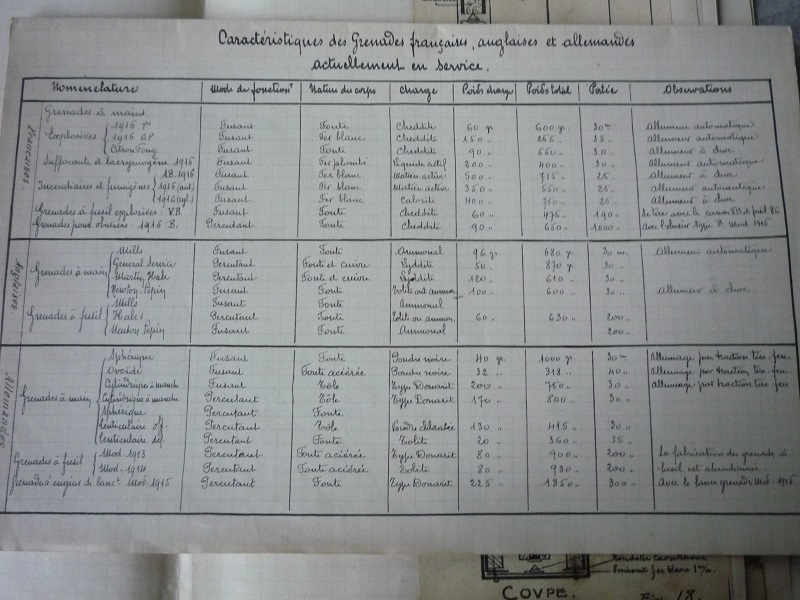 Caractéristiques des Grenades françaises, anglaises et allemandes
actuellement en service.
Nomenclature Mode de fonctiont Nature du corps charge Poids charge Poids total Portée Observations
Françaises
Grenades à mains
Explosives 1916 Fusant Fonte Cheddite 60 gr. 600 gr. 30m Allumeur automatique
1916 O.F. Fusant Fer blanc Cheddite 150 " 255 " 35 " Allumeur automatique
Citron Foug Fusant Fonte Cheddite 90 " 550 " 30 " Allumeur à choc
Suffocante et lacrymogène 1916 Fusant Fer plombé Liquide actif 200 " 400 " 30 " Allumeur automatique
Incendiaires et fumigènes AB. 1916 Fusant Fer blanc Matière active 500 " 715 " 25 " Allumeur à choc
1916 (aut) Fusant Fer blanc Matière active 350 " 550 " 25 " Allumeur automatique
1916 (cyl.) Fusant Fer blanc Calorite 400 " 750 " 25 " Allumeur à choc
Grenades à fusil explosives : V.B. Fusant Fonte Cheddite 60 " 475 " 190 " Se tire avec le canon VB et fusil 86
Grenades pour obusiers : 1915 B. Percutant Fonte Cheddite 90 " 650 " 1000 " Avec l'obusier type B. Mod 1915
Anglaises
Grenades à main Mills Fusant Fonte Ammonal 96 gr. 680 gr. 30 m. Allumeur automatique
General Service Percutant Fonte et cuivre Lyddite 50 " 870 gr. 30 "
Martin Hale Percutant Fonte et cuivre Lyddite 120 " 610 " 30 "
Newton Pippin Fusant Fonte Tolite ou ammon. 100 " 600 " 30 " Allumeur à choc
Grenades à fusil Mills Fusant Fonte Ammonal
Hales Percutant Fonte Tolite ou ammon. 60 " 630 " 200 "
Newton Pippin Fusant Fonte Ammonal 200 "
Allemandes
Grenades à main Sphérique Fusant Fonte Poudre noire 40 gr. 1000 gr. 30m Allumage par traction tire-feu
Ovoïde Fusant Fonte aciérée Poudre noire 32 " 318 " 40 " Allumage par traction tire-feu
Cylindrique à manche Fusant Tôle Type Donarit 200 " 750 " 30 " Allumage par traction tire-feu
Cylindrique à manche Percutant Tôle Type Donarit 170 " 800 " 30 "
Sphérique Percutant Fonte
Lenticulaire off. Percutant Tôle Poudre chloratée 130 " 415 " 30 "
Lenticulaire df. Percutant Fonte Tolite 20 " 360 " 35 "
Grenades à fusil Mod. 1913 Percutant Fonte aciérée Type Donarit 80 " 900 " 200 " La fabrication des grenades à
Mod. 1914 Percutant Fonte aciérée Tolite 80 " 930 " 200 " fusil est abandonnée
Grenades à engins de lanct Mod. 1915 Percutant Fonte Type Donarit 225 " 1850 " 300 " Avec le lance grenades Mod. 1915
Rondelle caoutchouc
Embouti fer blanc
COUPE. Fig. 18.